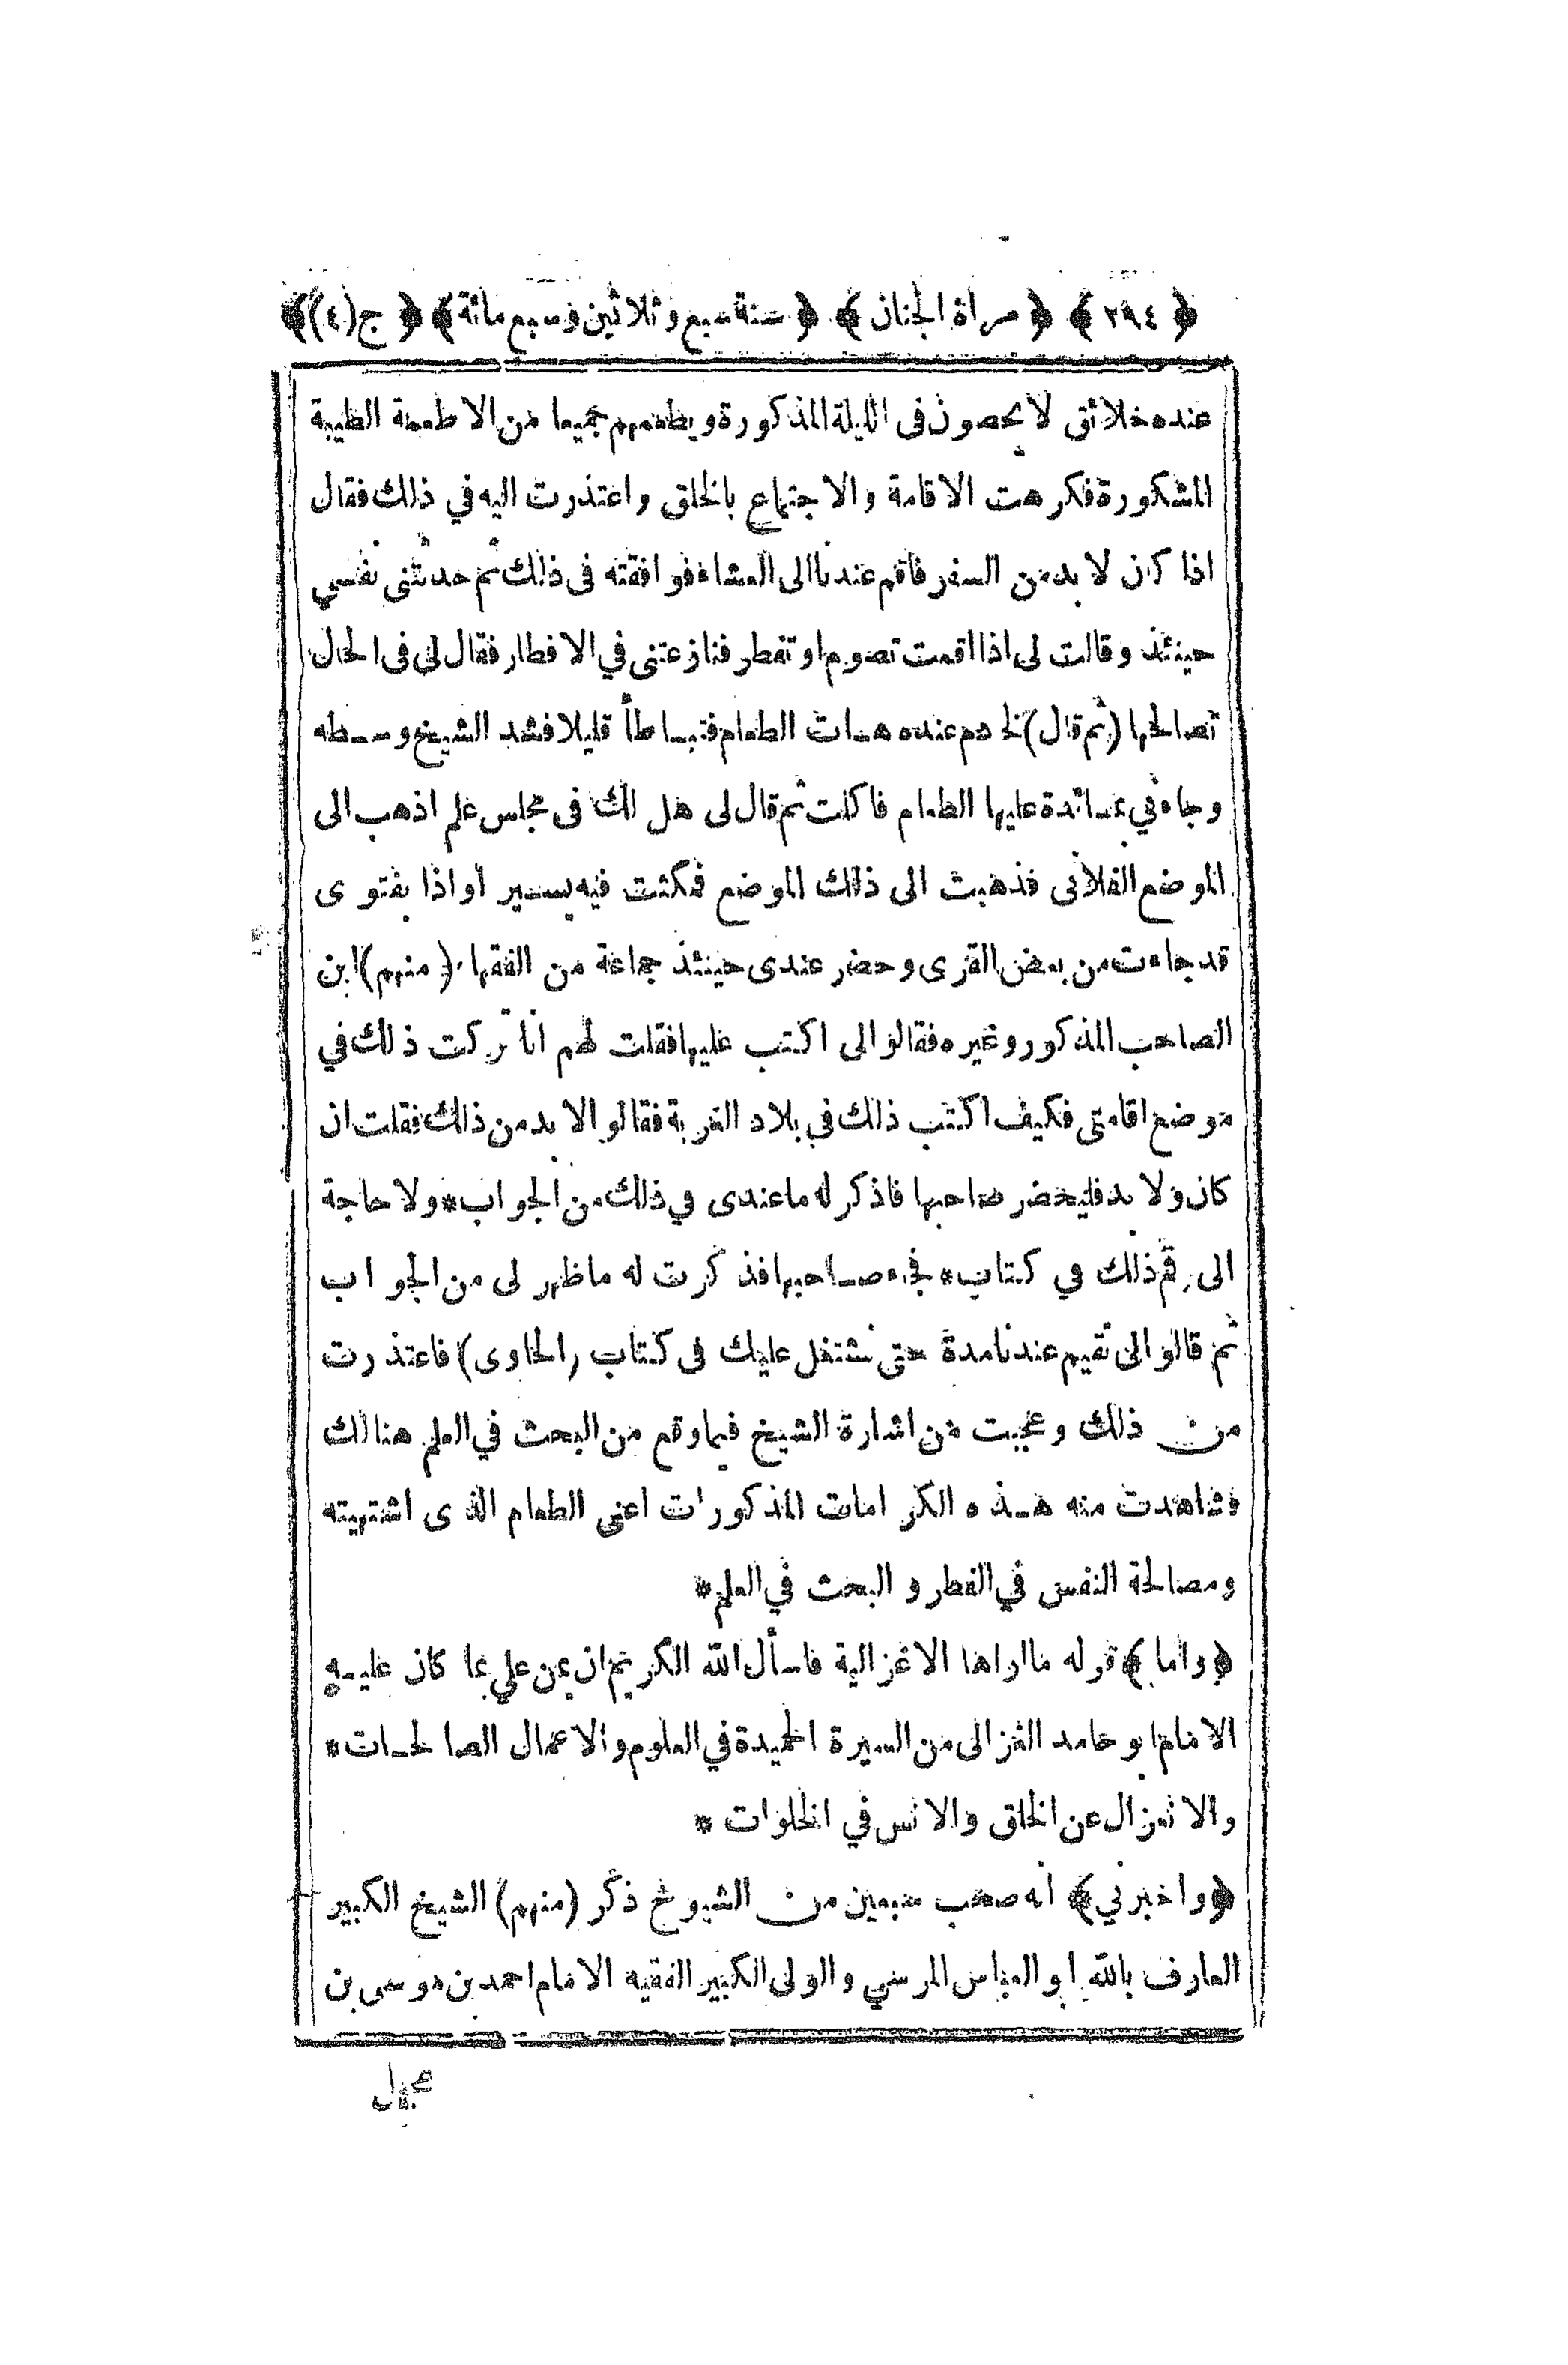 ﴿ ٢٩٤ ﴾ ﴿ مرآة الجنان ﴾ ﴿ سنة سبع وثلاثين وسبع مائة ﴾ ﴿ ج (٤) ﴾
عنده خلائق لا يحصون فى الليلة المذكورة ويطعمهم جميعا من الاطعمة الطيبة
المشكورة فكرهت الاقامة والاجتماع بالخلق واعتذرت اليه في ذلك فقال
اذا كان لا بد من السفر فاقم عندنا الى العشاء فوافقته فى ذلك ثم حدثتنى نفسي
حينئذ وقالت لى اذا اقمت تصوم او تفطر فنازعتنى في الافطار فقال لى فى الحال
تصالحها (ثم قال) لخادم عنده هات الطعام فتباطأ قليلا فشد الشيخ وسطه
وجاءني بمائدة عليها الطعام فاكلت ثم قال لى هل لك فى مجلس علم اذهب الى
الموضع الفلانى فذهبت الى ذلك الموضع فمكثت فيه يسيرا واذا بفتوى
قد جاءت من بعض القرى وحضر عندى حينئذ جماعة من الفقهاء (منهم) ابن
الصاحب المذكور وغيره فقالوا لى اكتب عليها فقلت لهم انا تركت ذلك في
موضع اقامتى فكيف اكتب ذلك في بلاد الغربة فقالوا لا بد من ذلك فقلت ان
كان ولا بد فليحضر صاحبها فاذكر له ما عندى في ذلك من الجواب * ولا حاجة
الى رقم ذلك في كتاب * فجاء صاحبها فذكرت له ما ظهر لى من الجواب
ثم قالوا لى تقيم عندنا مدة حتى نشتغل عليك فى كتاب (الحاوى) فاعتذرت
من ذلك وعجبت من اشارة الشيخ فيما وقع من البحث في العلم هنالك
وشاهدت منه هذه الكرامات المذكورات اعنى الطعام الذى اشتهيته
ومصالحة النفس في الفطر و البحث في العلم *
﴿ واما ﴾ قوله ما اراها الا غزالية فاسأل الله الكريم ان يمن علي بما كان عليه
الامام ابو حامد الغزالى من السيرة الحميدة في العلوم والاعمال الصالحات *
والانعزال عن الخلق والانس في الخلوات *
﴿ واخبرني ﴾ انه صحب سبعين من الشيوخ ذكر (منهم) الشيخ الكبير
العارف بالله ابو العباس المرسي والولى الكبير الفقيه الامام احمد بن موسى بن
عجيل